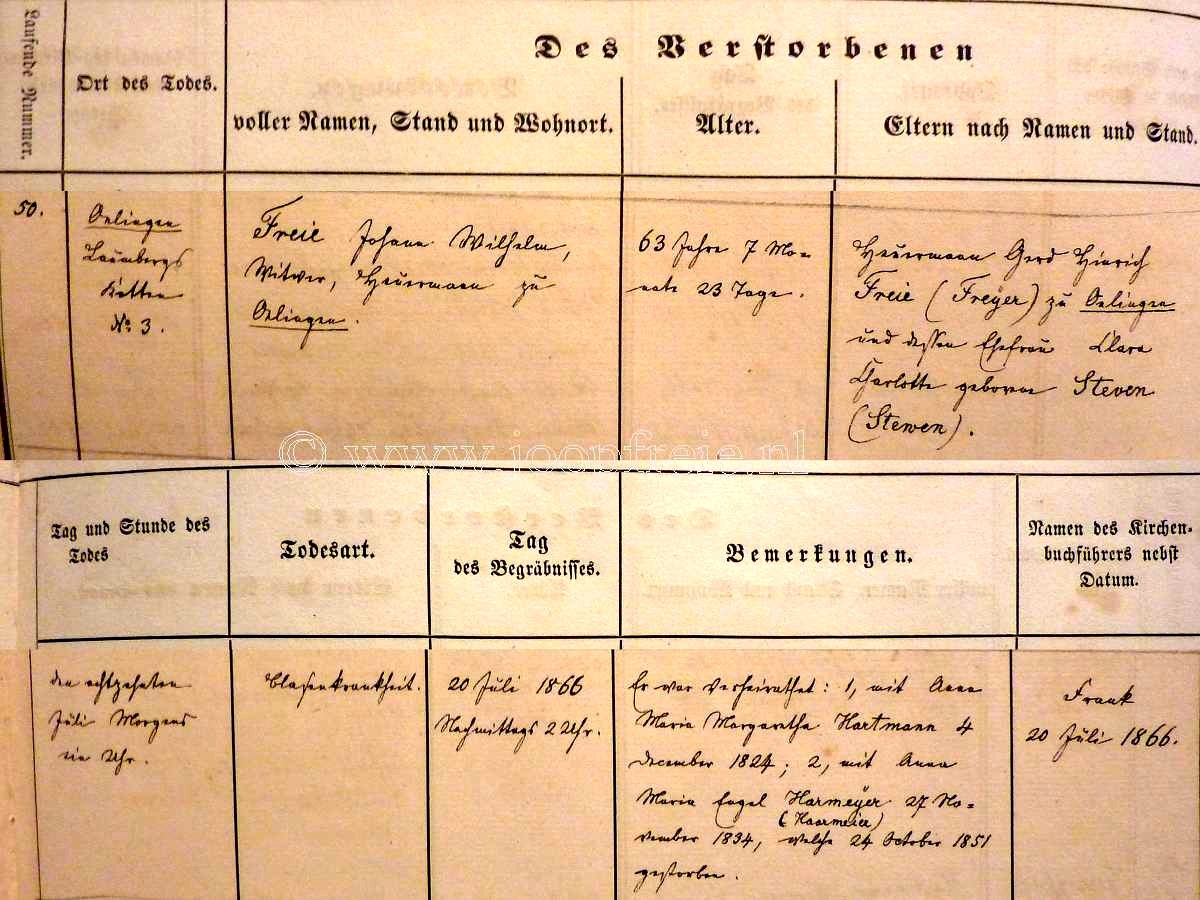 Laufende Nummer.
Ort des Todes.
Des Verstorbenen
voller Namen, Stand und Wohnort.
Alter.
Eltern nach Namen und Stand.
50.
Oelingen
Laumbergs
Kotten
No 3.
Freie Johann Wilhelm,
Witwer, Heuermann zu
Oelingen.
63 Jahre 7 Mo-
nate 23 Tage.
Heuermann Gerd Hinrich
Freie (Freyer) zu Oelingen
und dessen Ehefrau Clara
Charlotte geborene Steven
(Stewen).
© www.joopfreie.nl
Tag und Stunde des
Todes
Todesart.
Tag
des Begräbnisses.
Bemerkungen.
Namen des Kirchen-
buchführers nebst
Datum.
den achtzehnten
Juli Morgens
ein Uhr.
Blasenkrankheit.
20 Juli 1866
Nachmittags 2 Uhr.
Er war verheirathet: 1, mit Anna
Maria Margaretha Hartmann 4
December 1824; 2, mit Anna
Maria Engel Harmeyer 27 No-
(Haarmeier)
vember 1834, welche 24 October 1851
gestorben.
Frank
20 Juli 1866.